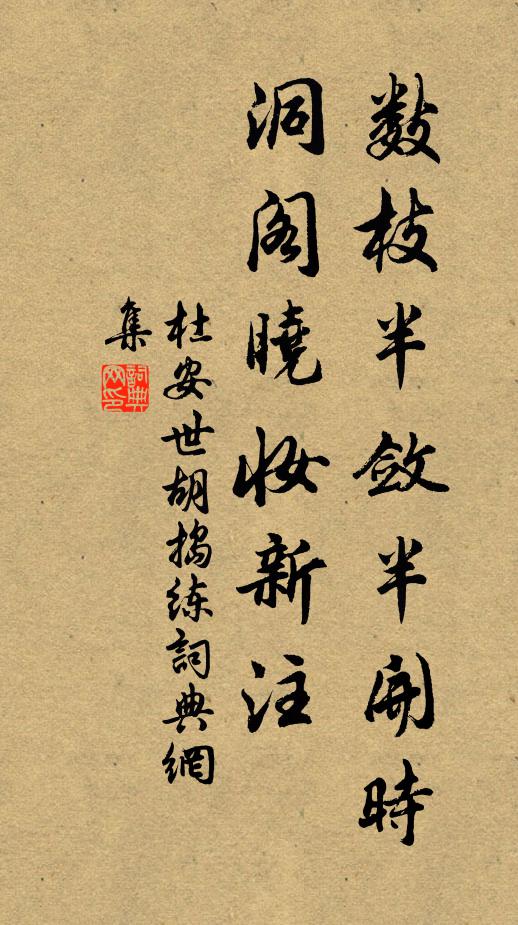 數枝半斂半開時
洞閣曉妝新注
杜安世胡搗練詞典網
集
詞典
网印